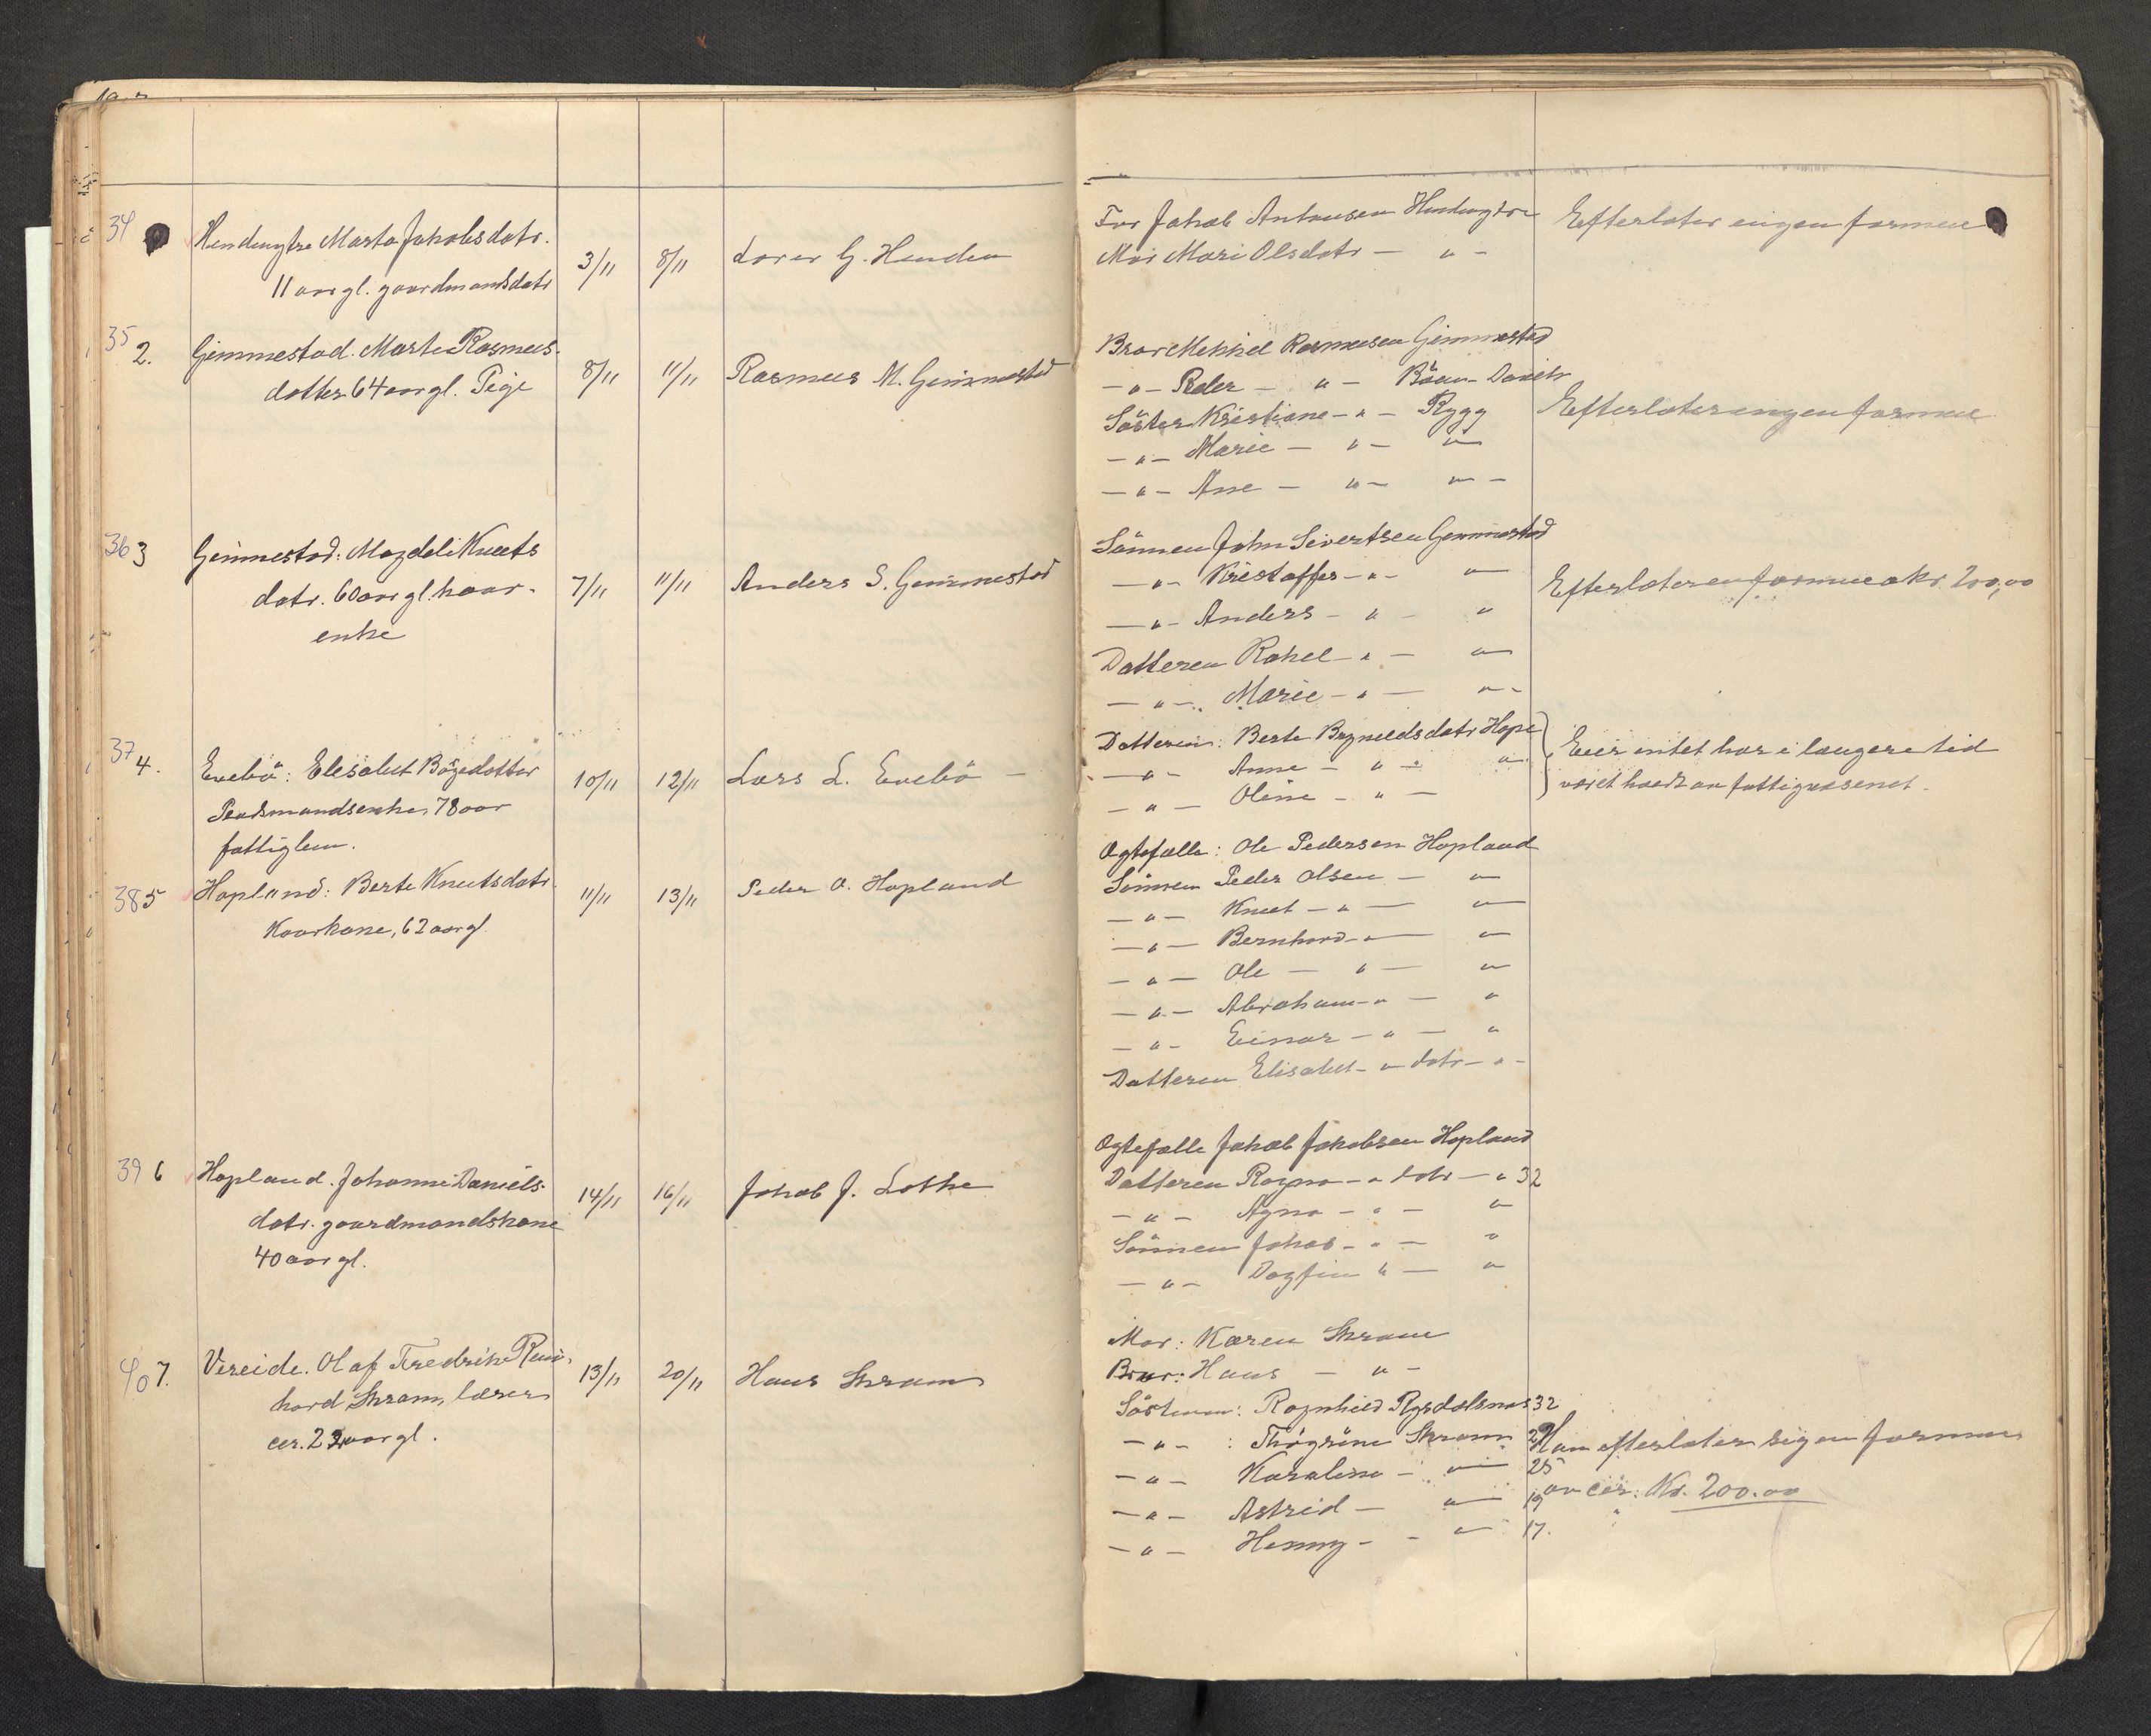 34
Hendenytre Marta Jakobsdatr.
11 aar gl. gaardmandsdatr
3/11
8/11
Lars G. Henden
35
2.
Gimmestad. Marte Rasmus-
datter 64 aar gl. Pige
8/11
11/11
Rasmus M. Gimmestad
36
3
Gimmestad: Magdeli Knuts
datr. 60 aar gl. kaar-
enke
7/11
11/11
Anders S. Gimmestad
37
4.
Evebö: Elisabet Bögedotter
78 aar
fattiglem.
10/11
12/11
Lars L. Evebö –
38
5
Hopland: Berte Knutsdatr.
Kaarkone, 62 aar gl.
11/11
13/11
Peder O. Hopland
39
6
Hopland. Johanne Daniels-
datr. gaardmandskone
40 aar gl.
14/11
16/11
Jakob J. Lothe
40
7.
Vereide. Olaf Fredrik Rein-
hard Skram, lærer
cir. 22 aar gl.
13/11
20/11
Hans Skram
Far Jakob Antonsen Hendenytre
Mor Mari Olsdatr – " –
Efterlater ingen formue
Bror Mekkel Rasmusen Gimmestad
– " – Peder – " – Böen – Davik
Söster Kristiane – " – Rygg
– " – Marie – " – "
– " – Ane – " – " –
Efterlater ingen formue
Sönnen John Sivertsen Gimmestad
– " – Kristoffer – " – "
– " – Anders – " – "
Datteren Rakel – " – "
– " – Marie – " – " –
Efterlater en formue a kr. 200,00
Datteren: Berte Bøgneldsdatr Hope
– " – Anne – " – "
– " – Oline – " –
Eier intet har i længere tid
været hævdt av fattigvæsenet.
Ogtefælle: Ole Pedersen Hopland
Sönnen Peder Olsen – "
– " – Knut – " – "
– " – Bernhard – " – "
– " – Ole – " – "
– " – Abraham – " – "
– " – Einar – " – "
Datteren Elisabet – " datr – " –
Ogtefælle Jakob Jakobsen Hopland
Datteren Ragna – " datr – " 32
– " – Agna – " – "
Sönnen Jakob – " – "
– " – Dagfin " – "
Mor: Karen Skram
Bror: Hans – " –
Söstrene: Ragnhild Rysdalsnes 32
– " – : Skram 29
– " – Karoline – " 25
– " – Astrid – " 19
– " – Henny – – " 17.
Han efterlater sig en formue
av cir. Kr. 200.00